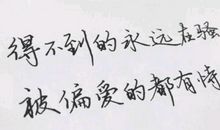 得不到的永远在骚
被偏爱的都有恃